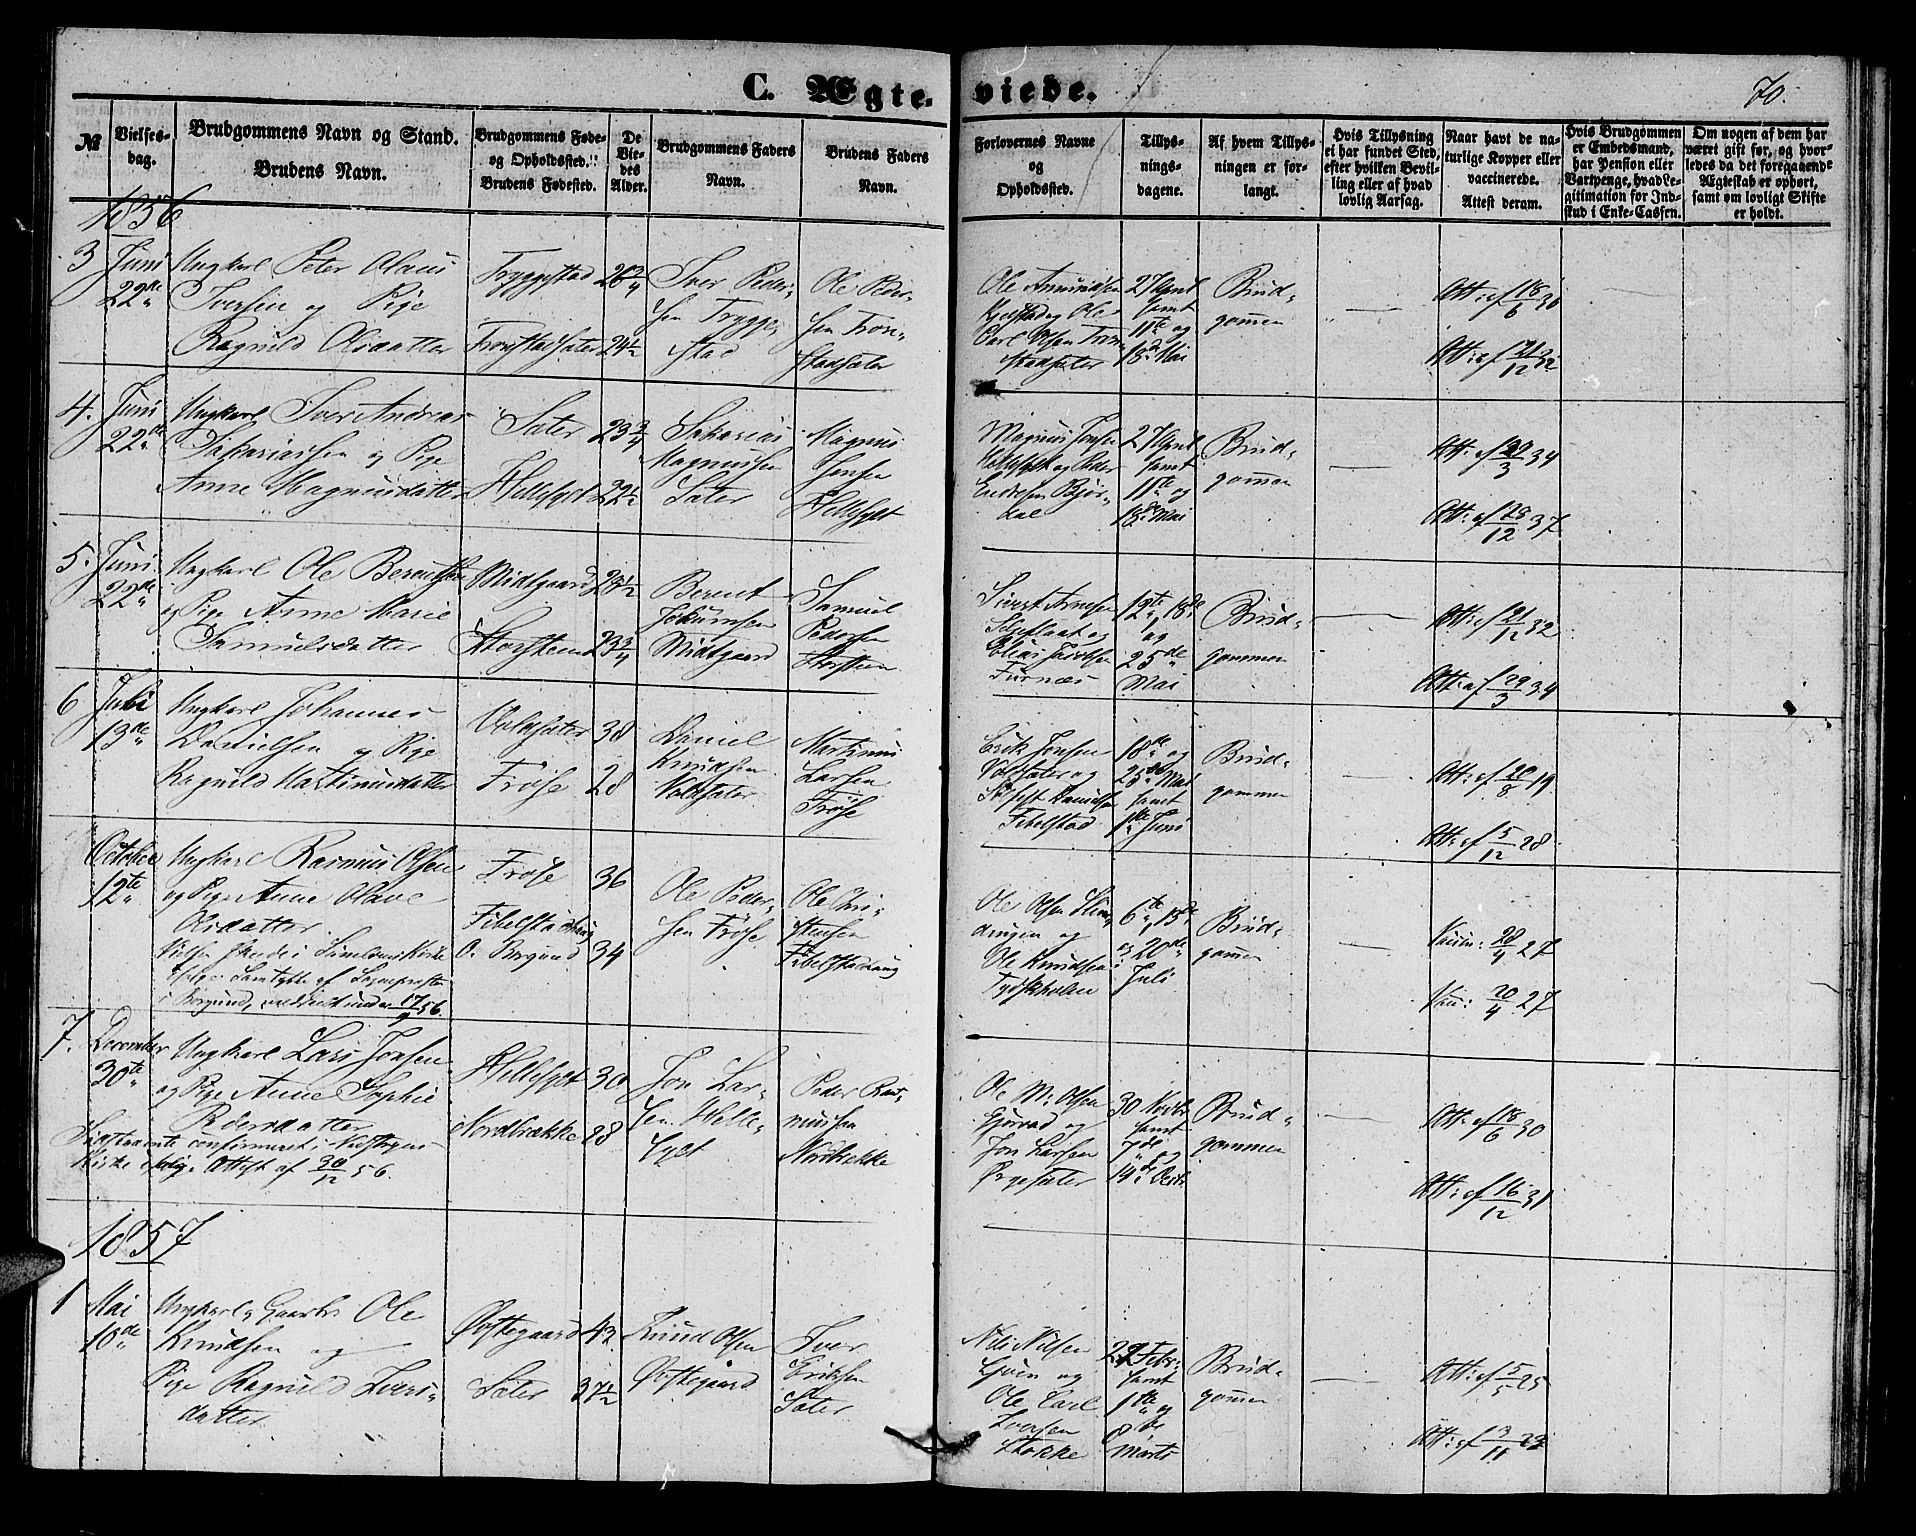 C. Ægte-
viede.
70.
№
Vielses-
dag.
Brudgommens Navn og Stand.
Brudens Navn.
Brudgommens Føde-
og Opholdssted.
Brudens Fødested.
De
Vie-
des
Alder.
Brudgommens Faders
Navn.
Brudens Faders
Navn.
Forlovernes Navne
og
Opholdssted.
Tillys-
nings-
dagene.
Af hvem Tillys-
ningen er for-
langt.
Hvis Tillysning
ei har fundet Sted,
efter hvilken Bevil-
ling eller af hvad
lovlig Aarsag.
Naar havt de na-
turlige Kopper eller
vaccinerede.
Attest derom.
Hvis Brudgommen
er Embedsmand,
har Pension eller
Vartpenge, hvad Le-
gitimation for Ind-
skud i Enke-Cassen.
Om nogen af dem har
været gift før, og hvor-
ledes da det foregaaende
Ægteskab er ophørt,
samt om lovligt Skifte
er holdt.
1856
3
Juni
22de
Ungkarl Peter Olaus
Iversen og Pige
Ragnild Olsdatter
Tryggestad
Tronstadsæter
26 3/4
24 1/2
Iver Peder-
sen Trygge-
stad
Ole Peder-
sen Tron-
stadsæter
Ole Amundsen
Gjelstad og Ole
Carl Olsen Tron-
stadsæter
27 April
samt
11te og
18de Mai
Brud-
gommen
Att: af 18/6 36
Att: af 21/12 32
4.
Juni
22de
Ungkarl Iver Andreas
Sakariassen og Pige
Anne Magnusdatter
Sæter
Hellesylt
23 3/4
32 1/2
Sakarias
Magnussen
Sæter
Magnus
Jensen
Hellesylt
Magnus Jensen
Hellesylt og Peder
Endresen Bjør-
dal
27 April
samt
11te og
18de Mai
Brud-
gommen
Att: af 29/3 34
Att: af 28/12 37
5.
Juni
22de
Ungkarl Ole Berentsen
og Pige Anne Marie
Samuelsdatter
Midtgaard
Korsteen
28 1/2
23 3/4
Berent
Jokumsen
Midtgaard
Samuel
Pedersen
Korsteen
Sivert Arnesen
og
Elias Jacobsen
Furnæs
12te, 18de
og
25de
Mai
Brud-
gommen
Att: af 21/12 32
Att: af 29/3 34
6
Juli
13de
Ungkarl Johannes
Danielsen og Pige
Ragnild Martinusdatter
Voldsæter
Frøse
38
28
Daniel
Knudsen
Voldsæter
Martinus
Larsen
Frøse
Erik Jensen
Voldsæter og
Danielsen
Fibelstad
18de og
25de Mai
samt
1ste Juni
Brud-
gommen
Att: af 20/8 19
Att: af 5/12 28
October
12te
Ungkarl Rasmus Olsen
og Pige Anne Olave
Olsdatter
Frøse
Fibelstadhaug
O. Borgund
36
34
Ole Peder-
sen Frøse
Ole Chri-
stensen
Fibelstadhaug
Ole Olsen
og
Ole Knudsen
Tydskholm
6te, 13de
og 20de
Juli
Brud-
gommen
Vaccin: 28/4 27
Vacc: 20/4 27
7.
December
30te
Ungkarl Lars Jonsen
og Pige Anne Sophie
Pedersdatter
Hellesylt
Nordbrække
30
28
Jon Lar-
sen Helle-
sylt
Peder Ras-
mussen
Nordbrække
Ole M. Olsen
og
Jon Larsen
Øvresæter
30 Novbr
samt
7de og
14de Decbr
Brud-
gommen
Att: af 18/6 30
Att: af 16/12 31
Attest af 30/12 56.
1857
1
Mai
10de
Ungkarl, Gaardbr Ole
Knudsen og
Pige Ragnild Ivers-
datter
Østtegaard
Sæter
42
37 1/2
Knud Olsen
Østtegaard
Iver
Eriksen
Sæter
Nils Nilsen
og
Ole Carl
Iversen
Stokke
22 Febr.
samt
1ste og
8de
Marts
Brud-
gommen
Att: af 5/5 25
Att: af 3/11 23